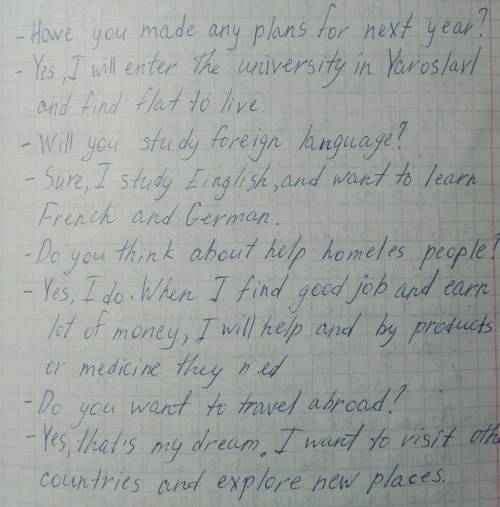 - Howe you made any plans for next year?
- Yes, I will enter the university in Yaroslavl
and find flat to live
- Will you study foreign language?
- Sure, I study Einglish, and want to learn
French and German.
- Do you think about help homeles people?
- Yes, I do. When I find good job and earn
lot of money, I will help and by products
or medicine they ned
- Do you want to travel abroad?
- Yes, that's my dream. I want to visit oth
countries and explore new places.